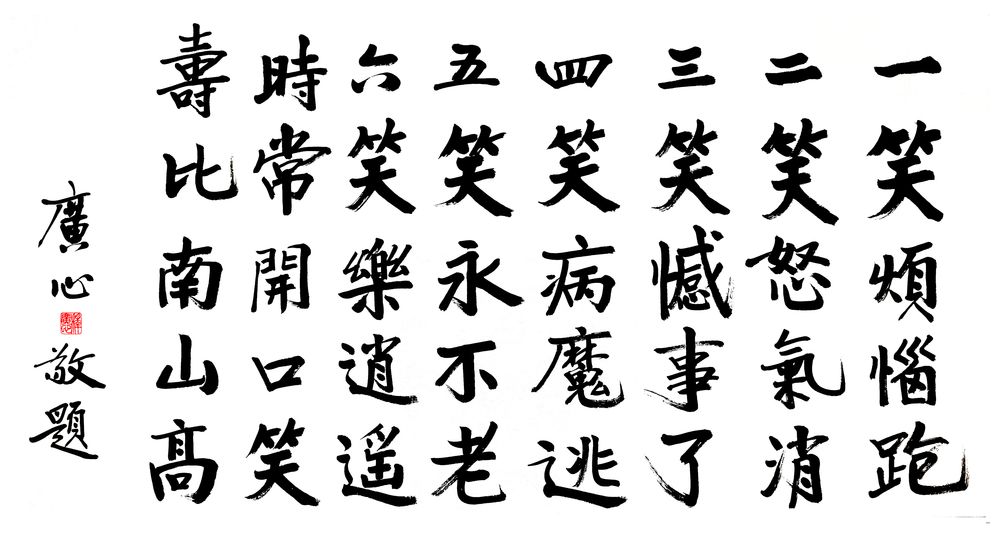 一笑煩惱跑
二笑怒氣消
三笑憾事了
四笑病魔逃
五笑永不老
六笑樂逍遥
時常開口笑
壽比南山高
廣心敬題